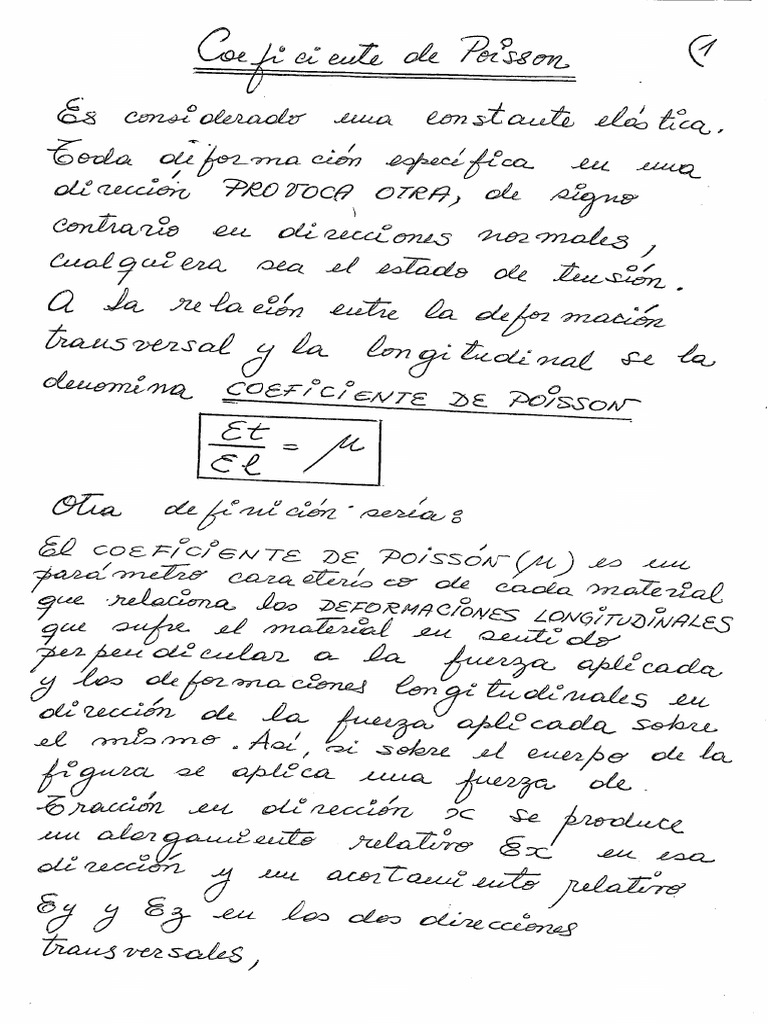 Coeficiente de Poisson (1
Es considerado una constante elástica.
Toda deformación específica en una
dirección PROVOCA OTRA, de signo
contrario en direcciones normales,
cualquiera sea el estado de tensión.
A la relación entre la deformación
transversal y la longitudinal se la
denomina COEFICIENTE DE POISSON
Et/El = μ
Otra definición sería:
El COEFICIENTE DE POISSÓN (μ) es un
parámetro caracterísco de cada material
que relaciona las DEFORMACIONES LONGITUDINALES
que sufre el material en sentido
perpendicular a la fuerza aplicada
y las deformaciones longitudinales en
dirección de la fuerza aplicada sobre
el mismo. Así, si sobre el cuerpo de la
figura se aplica una fuerza de
Tracción en dirección x se produce
un alargamiento relativo Ex en esa
dirección y un acortamiento relativo
Ey y Ez en las dos direcciones
transversales,